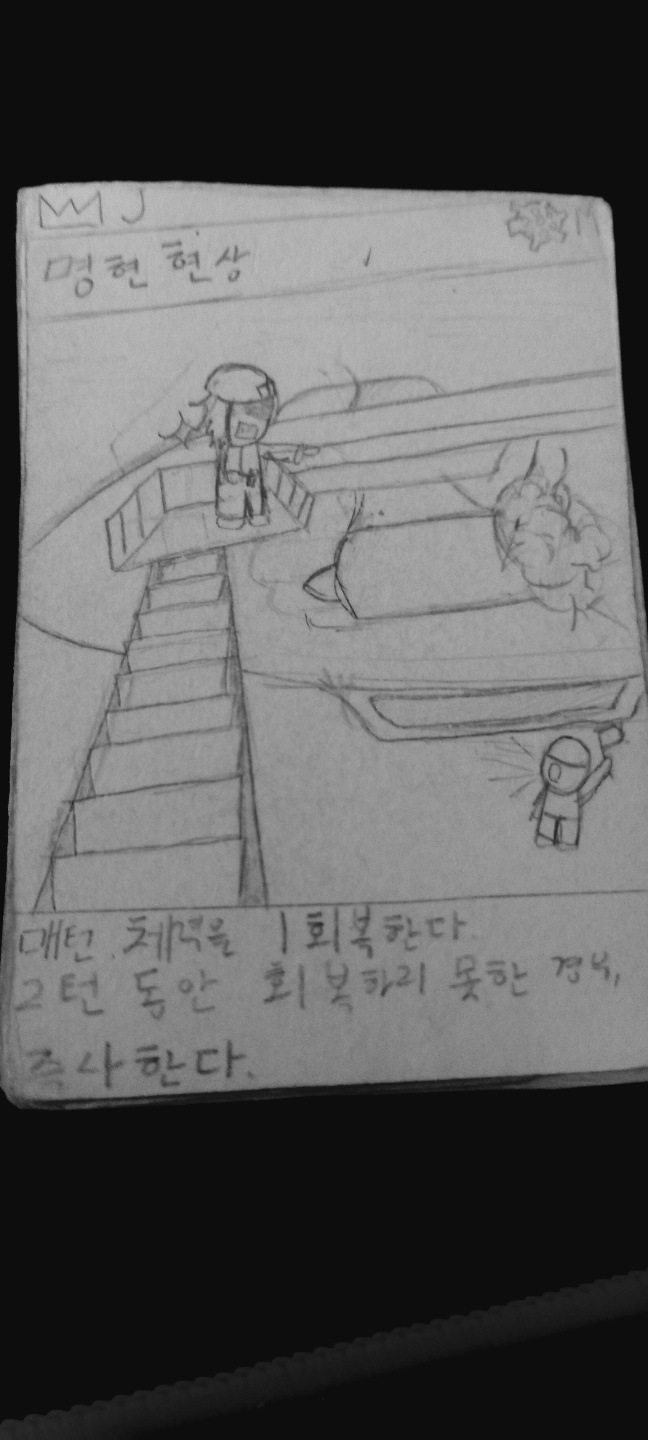 J M
명현 현상
매턴 체력을 1 회복한다.
2턴 동안 회복하지 못한 경우,
즉사한다.